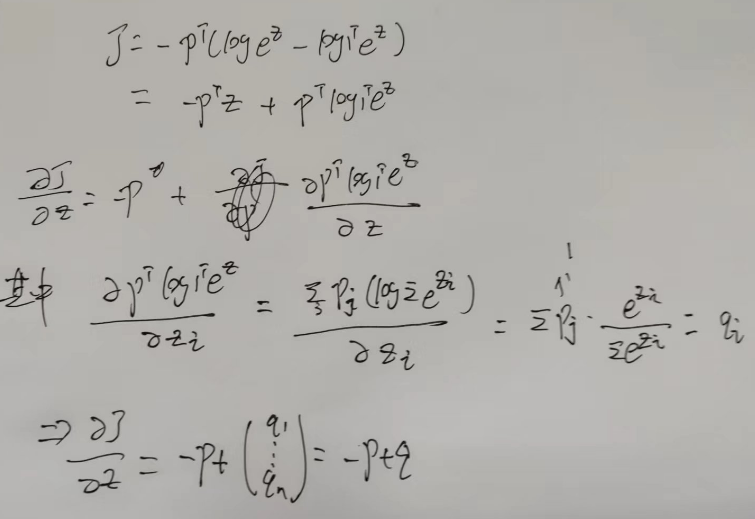 J = -pᵀ(log eᶻ - log 1ᵀeᶻ)
= -pᵀz + pᵀ log 1ᵀeᶻ
∂J/∂z = -p + ∂pᵀ log 1ᵀeᶻ / ∂z
其中 ∂pᵀ log 1ᵀeᶻ / ∂zᵢ = Σⱼ Pⱼ (log Σe^{zᵢ}) / ∂zᵢ = ΣPⱼ · e^{zᵢ} / Σe^{zᵢ} = qᵢ
1
⇒ ∂J/∂z = -p + (q₁ ⋮ qₙ) = -p+q